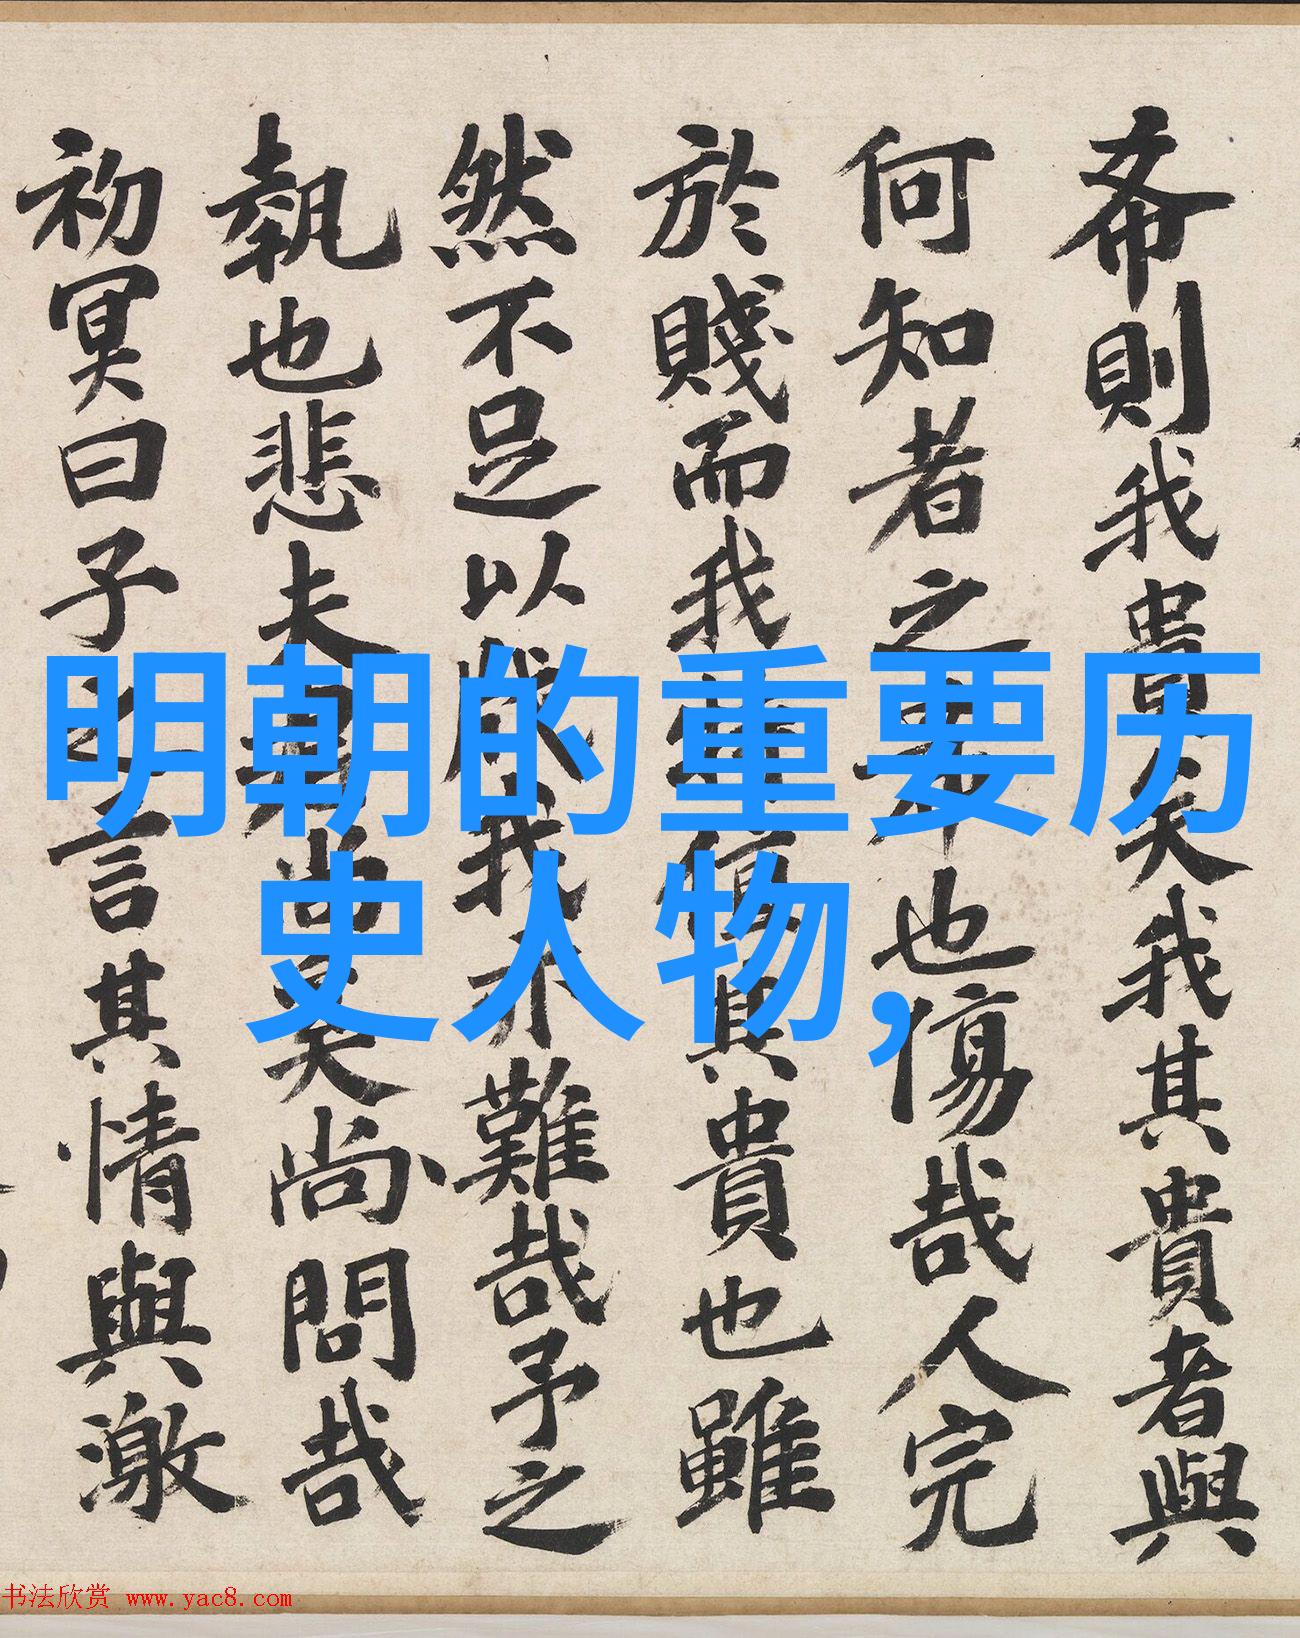 希則我貴矣我其貴者與
何知者之也傷哉人完
於賤而我其貴也雖
然不足以我難哉予之
執也悲夫尚矣尚問哉
初冥曰子之言其情與激
明朝的重要历
史人物,
书法欣赏 www.yac8.com